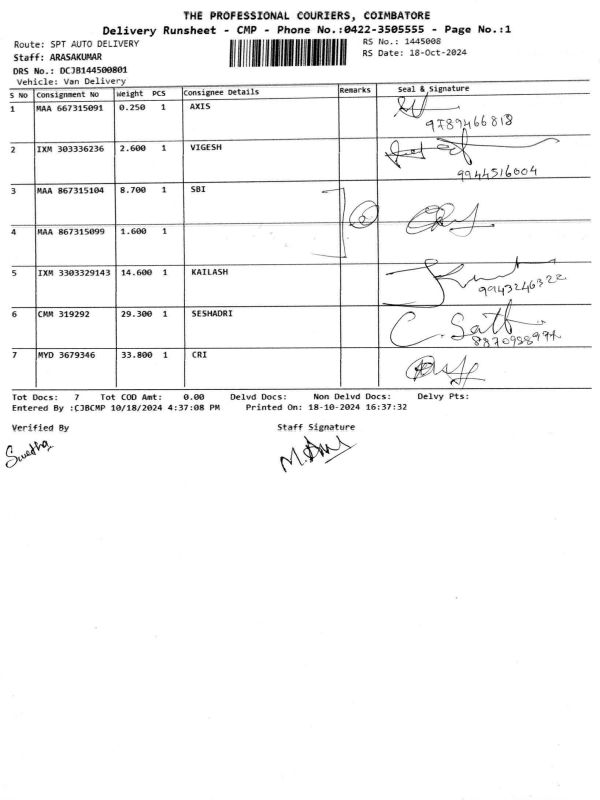 THE PROFESSIONAL COURIERS, COIMBATORE
Delivery Runsheet - CMP - Phone No.:0422-3505555 - Page No.:1
Route: SPT AUTO DELIVERY
RS No.: 1445008
Staff: ARASAKUMAR
RS Date: 18-Oct-2024
DRS No.: DCJB144500801
Vehicle: Van Delivery
S No Consignment No Weight PCS Consignee Details Remarks Seal & Signature
1 MAA 667315091 0.250 1 AXIS
9789466818
2 IXM 303336236 2.600 1 VIGESH
9944516004
3 MAA 867315104 8.700 1 SBI
4 MAA 867315099 1.600 1
5 IXM 3303329143 14.600 1 KAILASH
9943246322
6 CMM 319292 29.300 1 SESHADRI
C. Sath
7 MYD 3679346 33.800 1 CRI
Tot Docs: 7 Tot COD Amt: 0.00 Delvd Docs: Non Delvd Docs: Delvy Pts:
Entered By :CJBCMP 10/18/2024 4:37:08 PM Printed On: 18-10-2024 16:37:32
Verified By Staff Signature
Swetha